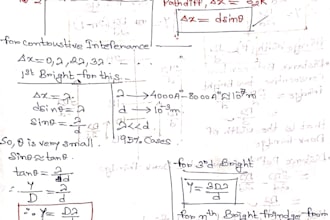 Path diff, Δx =
Δx = dsinθ
for constructive Interference
Δx = 0, λ, 2λ, 3λ
1st Bright for this
Δx = λ
dsinθ = λ
sinθ = λ/d
λ → 4000Å - 8000Å ≈ 10⁻⁷m
d → 10⁻³m
λ<<d
95% Cases
So, θ is very small.
sinθ ≈ tanθ
tanθ = λ/d
Y/D = λ/d
∴ Y = Dλ/d
for 3rd Bright
Y = 3Dλ/d
for nth Bright fringe from